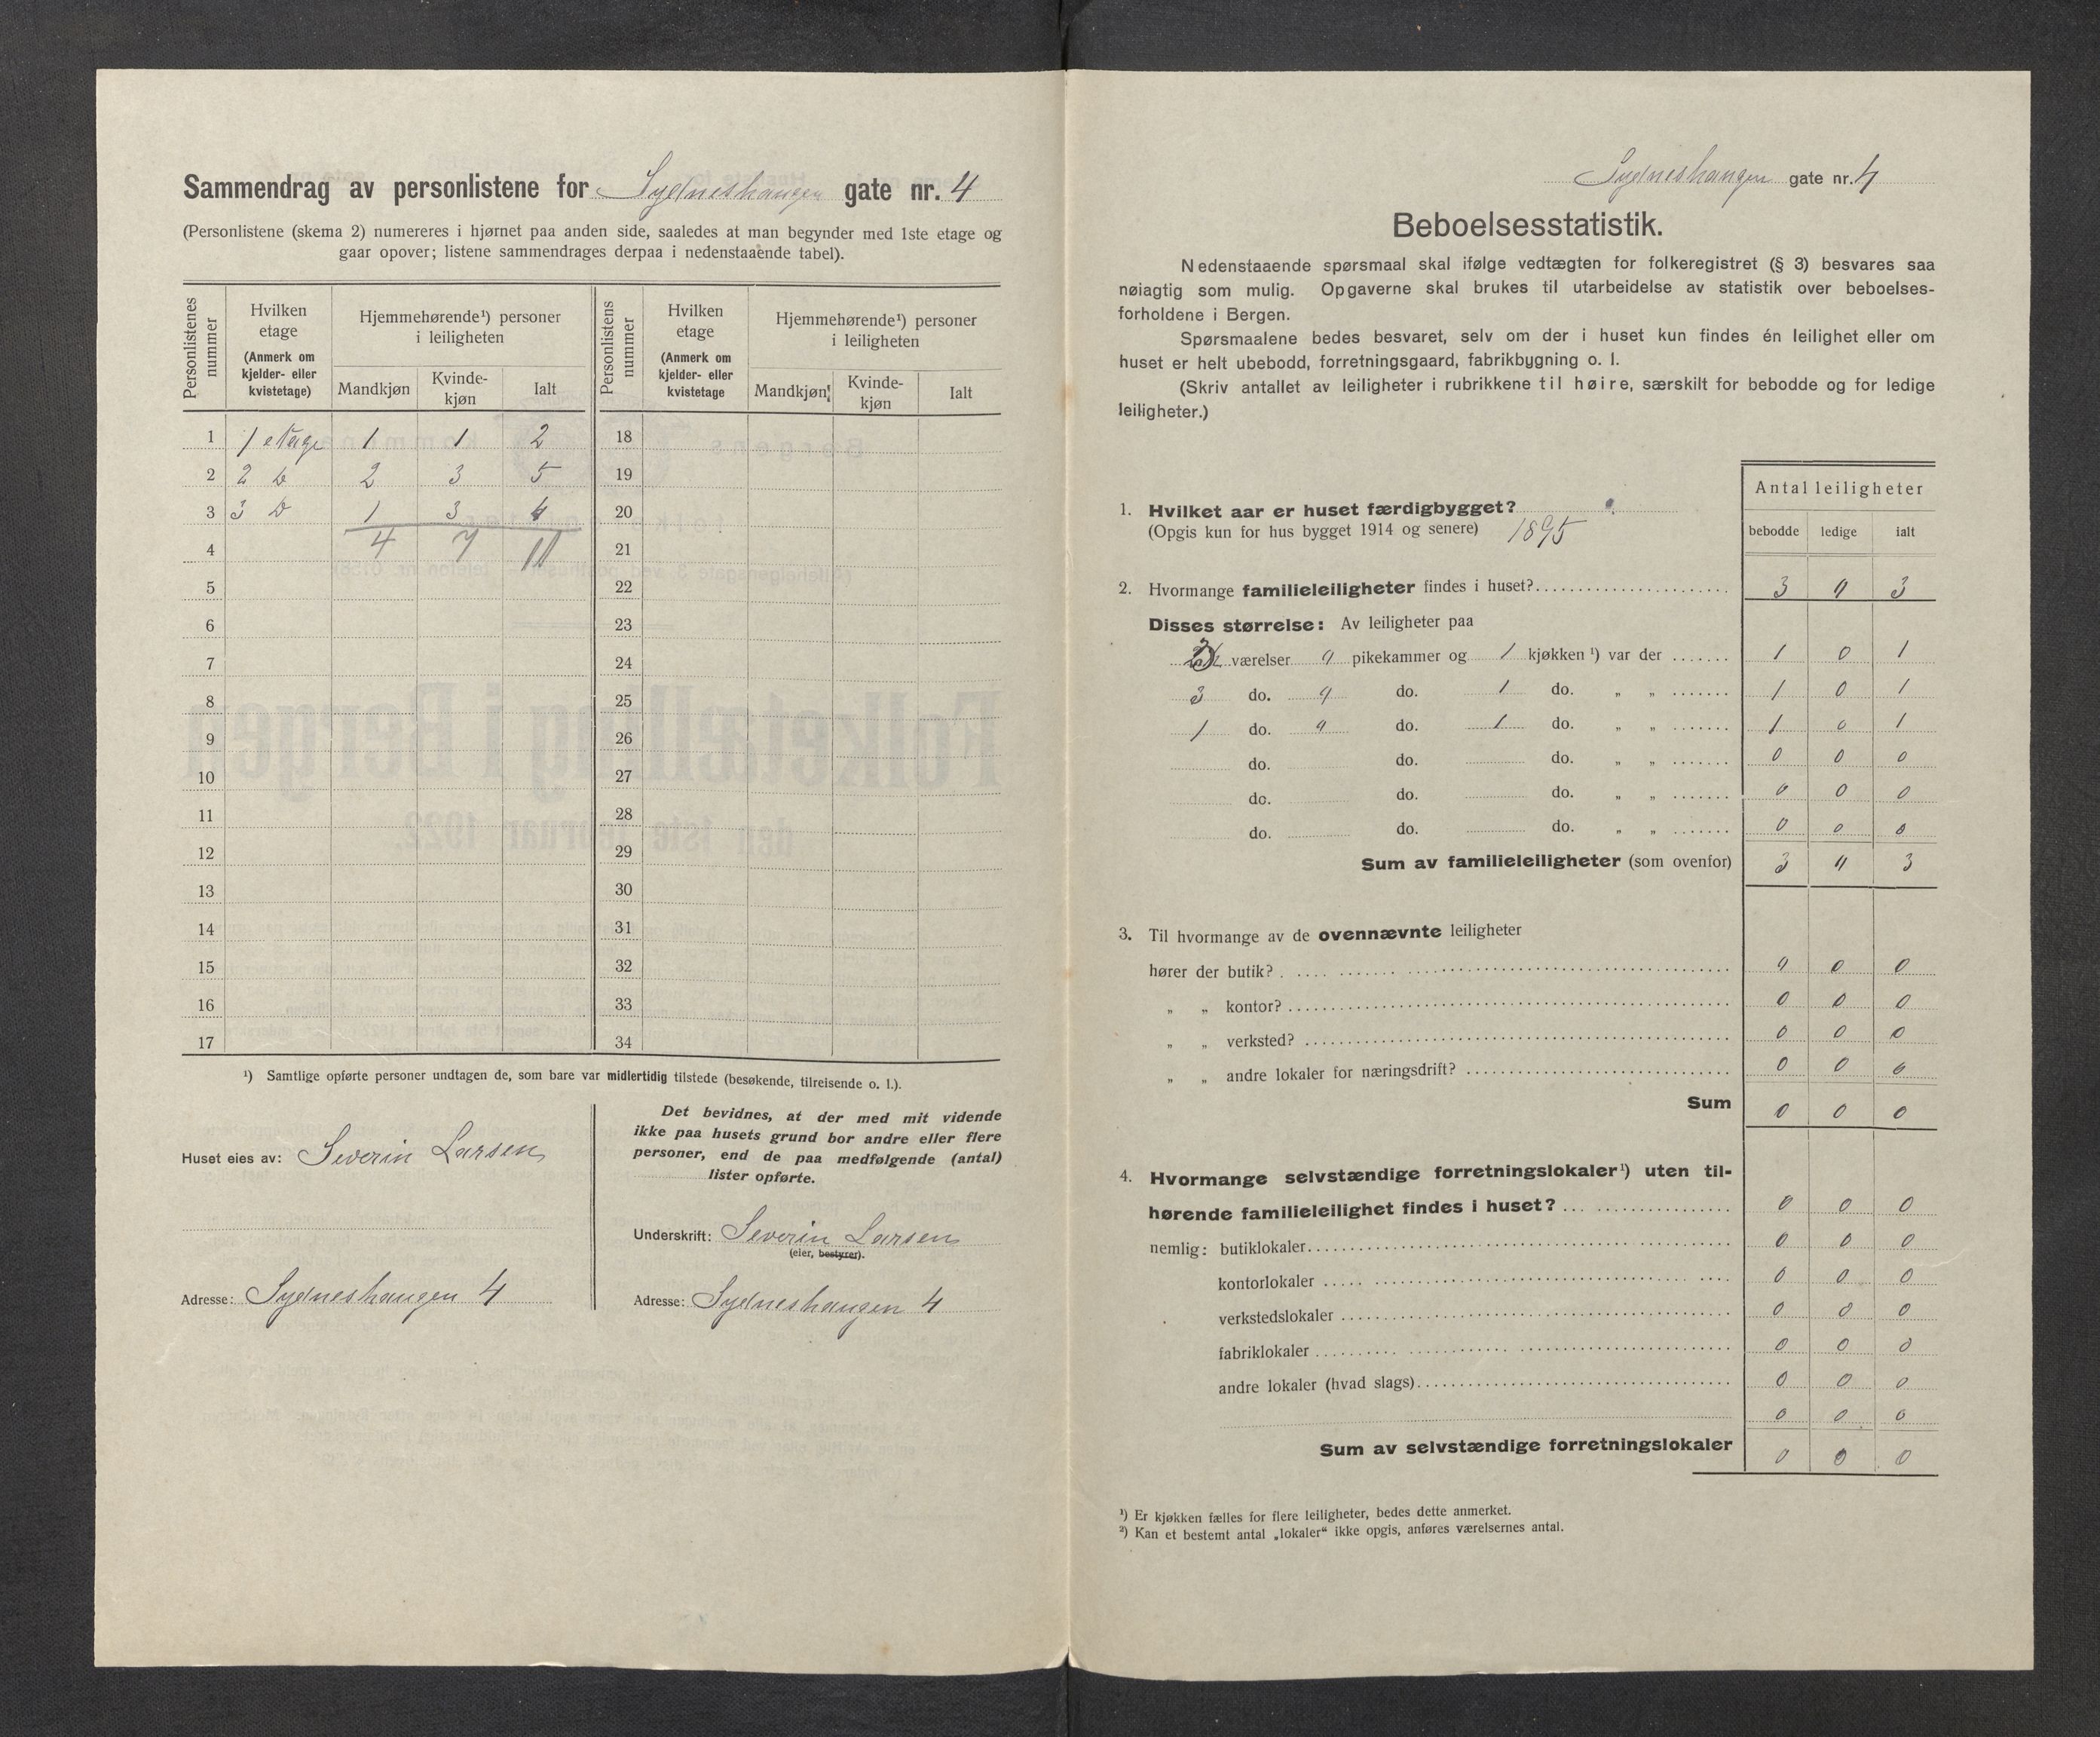 Sammendrag av personlistene for Sydneshaugen gate nr. 4
(Personlistene (skema 2) numereres i hjørnet paa anden side, saaledes at man begynder med 1ste etage og
gaar opover; listene sammendrages derpaa i nedenstaaende tabel).
Personlistenes nummer
Hvilken etage (Anmerk om kjelder- eller kvistetage)
Hjemmehørende¹) personer i leiligheten
Mandkjøn Kvinde-kjøn Ialt
Personlistens nummer
Hvilken etage (Anmerk om kjelder- eller kvistetage
Hjemmehørende¹) personer i leiligheten
Mandkjøn Kvinde-kjøn Ialt
1 1 etage 1 1 2 18
2 2 D 2 3 5 19
3 3 D 1 3 4 20
4 4 7 11 21
5 22
6 23
7 24
8 25
9 26
10 27
11 28
12 29
13 30
14 31
15 32
16 33
17 34
¹) Samtlige opførte personer undtagen de, som bare var midlertidig tilstede (besøkende, tilreisende o. l.).
Huset eies av: Severin Larsen
Adresse: Sydneshaugen 4
Det bevidnes, at der med mit vidende
ikke paa husets grund bor andre eller flere
personer, end de paa medfølgende (antal)
lister opførte.
Underskrift: Severin Larsen
(eier, bestyrer).
Adresse: Sydneshaugen 4
Sydneshaugen gate nr. 4
Beboelsesstatistik.
Nedenstaaende spørsmaal skal ifølge vedtægten for folkeregistret (§ 3) besvares saa
nøiagtig som mulig. Opgaverne skal brukes til utarbeidelse av statistik over beboelses-
forholdene i Bergen.
Spørsmaalene bedes besvaret, selv om der i huset kun findes én leilighet eller om
huset er helt ubebodd, forretningsgaard, fabrikbygning o. l.
(Skriv antallet av leiligheter i rubrikkene til høire, særskilt for bebodde og for ledige
leiligheter.)
Antal leiligheter
bebodde ledige ialt
1. Hvilket aar er huset færdigbygget?
(Opgis kun for hus bygget 1914 og senere) 1895
2. Hvormange familieleiligheter findes i huset? 3 0 3
Disses størrelse: Av leiligheter paa
værelser 0 pikekammer og 1 kjøkken ¹) var der 1 0 1
3 do. 0 do. 1 do. „ „ 1 0 1
1 do. 0 do. 1 do. „ „ 1 0 1
do. do. do. „ „ 0 0 0
do. do. do. „ „ 0 0 0
do. do. do. „ „ 0 0 0
Sum av familieleiligheter (som ovenfor) 3 0 3
3. Til hvormange av de ovennævnte leiligheter
hører der butik? 0 0 0
„ „ kontor? 0 0 0
„ „ verksted? 0 0 0
„ „ andre lokaler for næringsdrift? 0 0 0
Sum 0 0 0
4. Hvormange selvstændige forretningslokaler¹) uten til-
hørende familieleilighet findes i huset? 0 0 0
nemlig: butiklokaler 0 0 0
kontorlokaler 0 0 0
verkstedslokaler 0 0 0
fabriklokaler 0 0 0
andre lokaler (hvad slags) 0 0 0
0 0 0
Sum av selvstændige forretningslokaler 0 0 0
¹) Er kjøkken fælles for flere leiligheter, bedes dette anmerket.
²) Kan et bestemt antal „lokaler“ ikke opgis, anføres værelsernes antal.